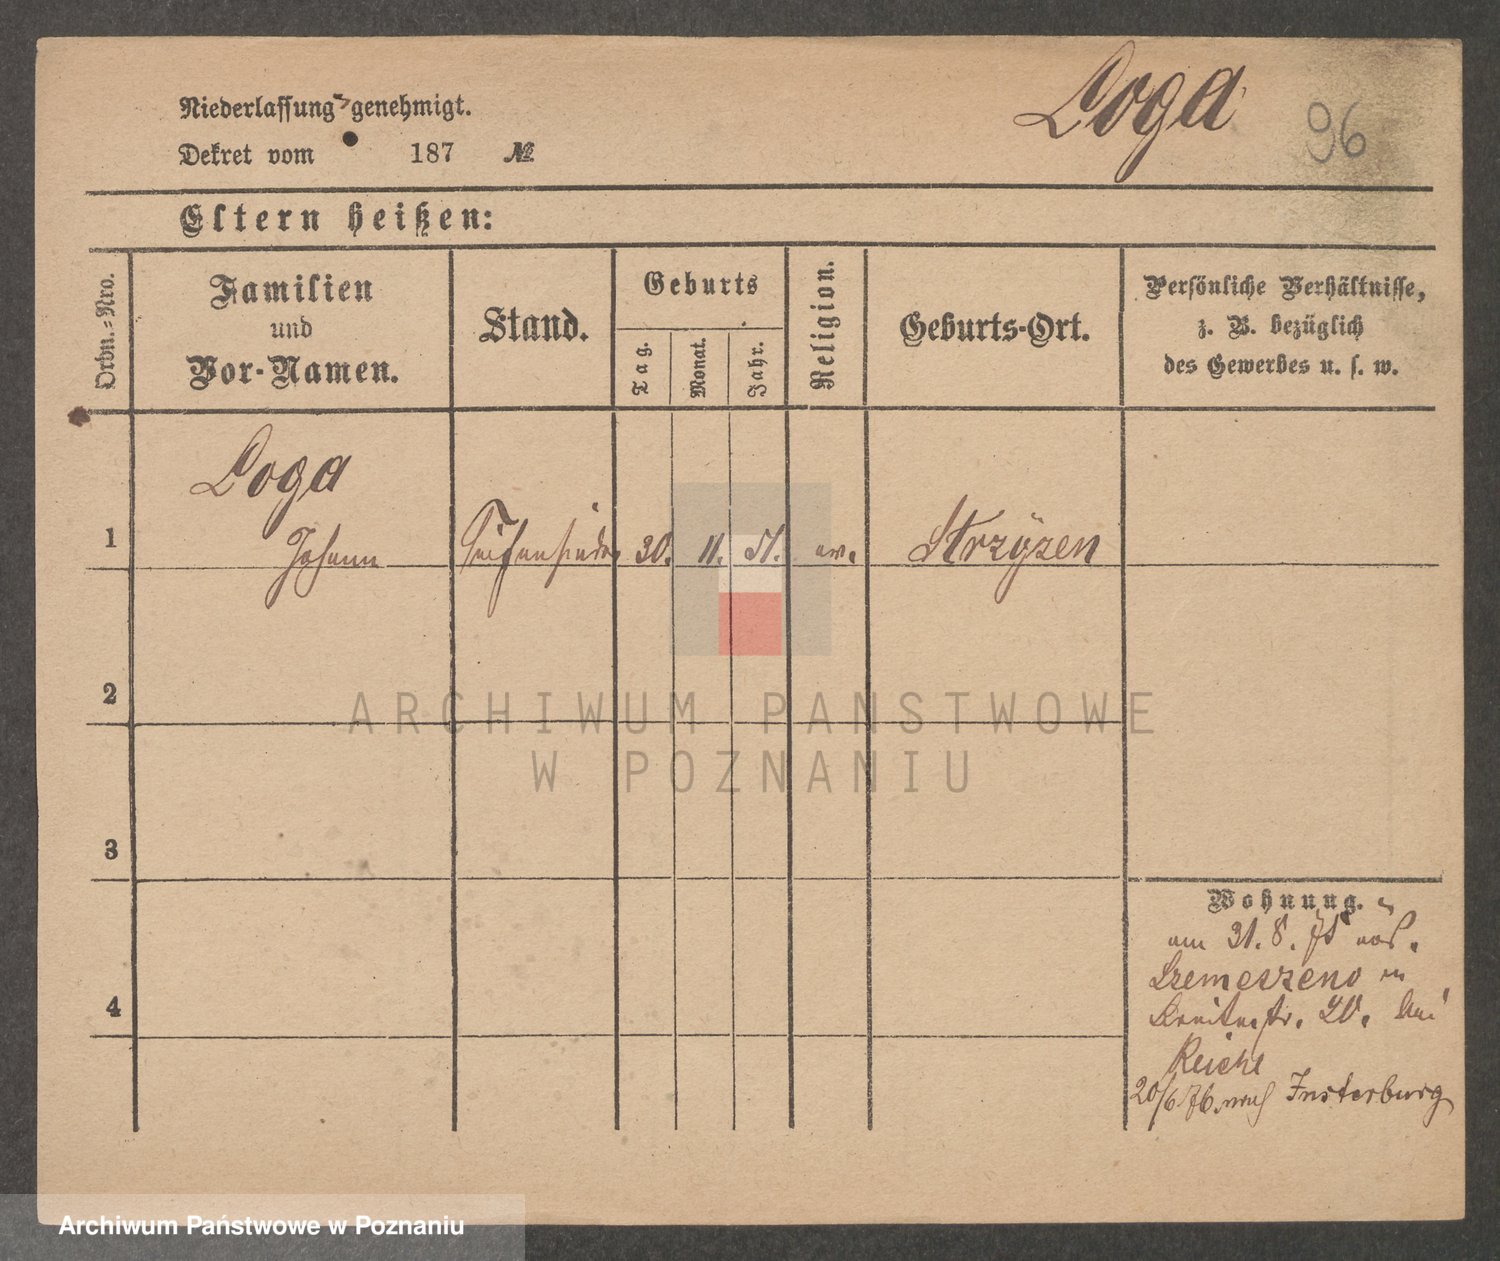 Loga
96
Niederlassung genehmigt.
Dekret vom 187 №
Eltern heißen:
Ordn.-Nro.
Familien
und
Vor-Namen.
Stand.
Geburts
Tag.
Monat.
Jahr.
Religion.
Geburts-Ort.
Persönliche Verhältnisse,
z. B. bezüglich
des Gewerbes u. s. w.
Loga
1 Johann Seifensieder 30. 11. 51. ev. Strzyzen
2
ARCHIWUM PAŃSTWOWE
W POZNANIU
3
Wohnung.
am 31. 8. 75
4
Breitestr. 20. bei
Reiche
20/6 76. nach Insterburg
Archiwum Państwowe w Poznaniu